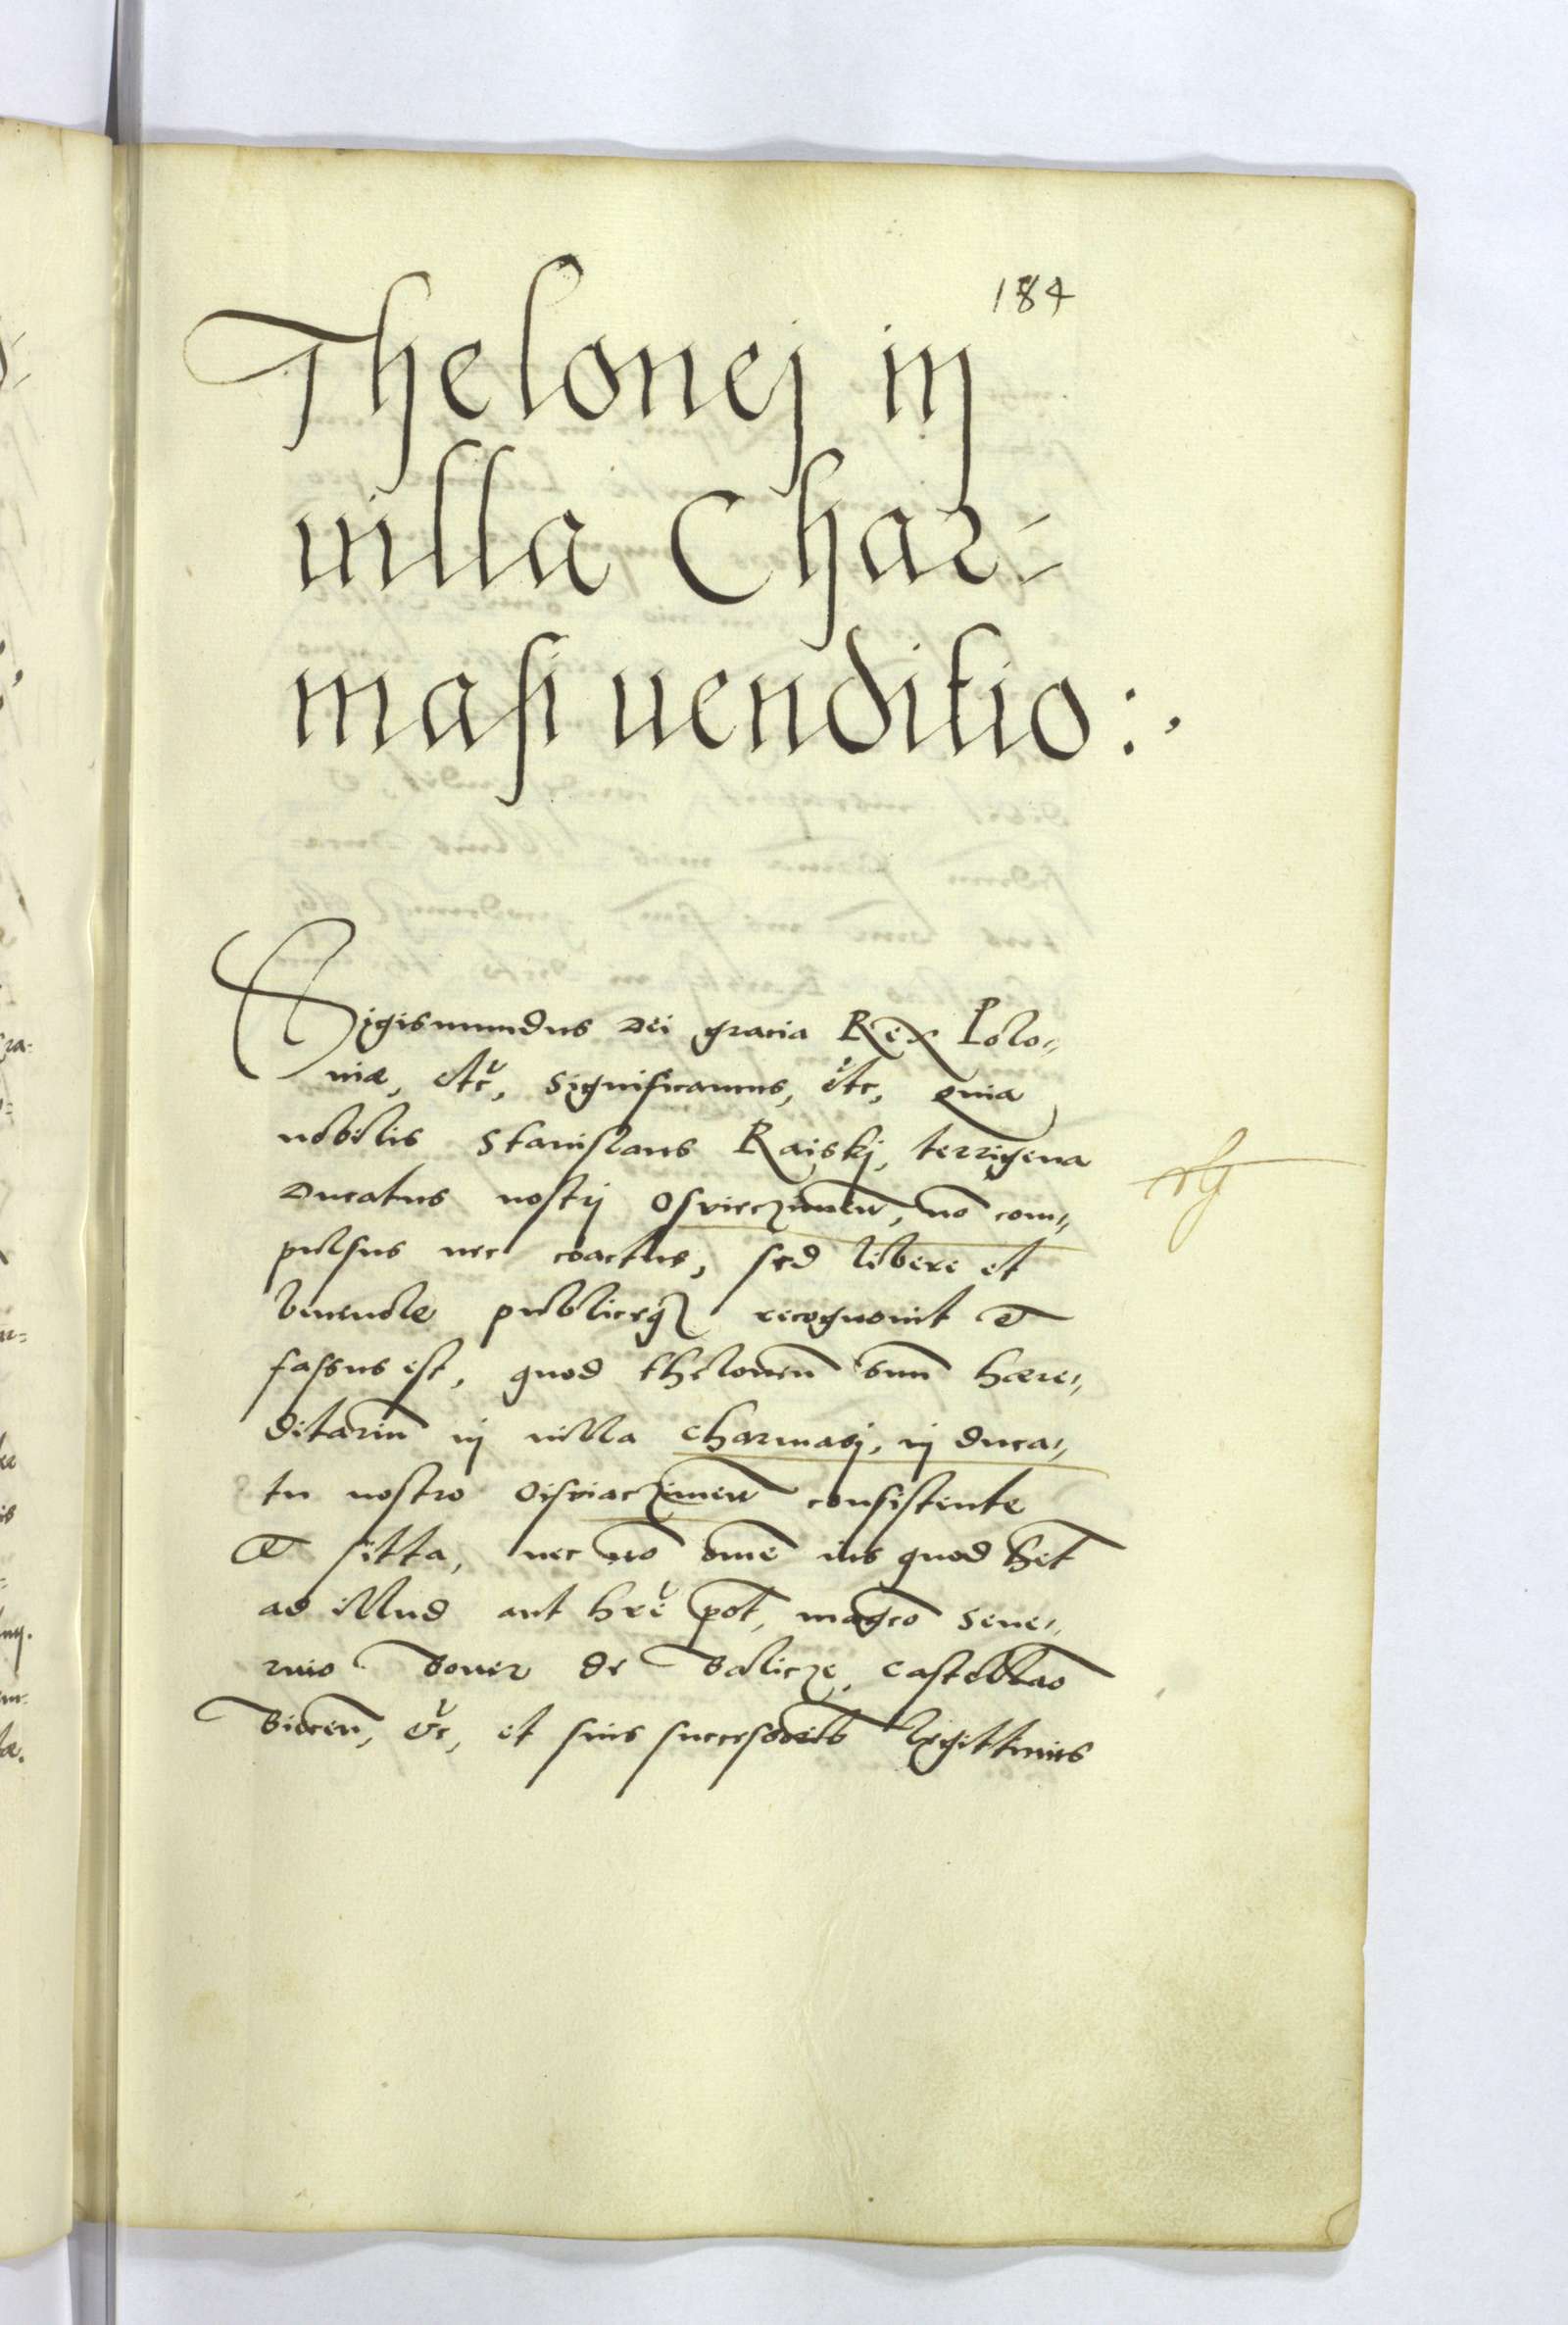 184
Thelonej in
uilla Char=
masi uenditio:,
Sigismundus Dei gracia Rex Polo„
niæ, etc̃, significamus, etc, quia
nobilis Stanislaus Raiskj, terrigena
Ducatus nostrj Osvieczimen̄, nō com„
pulsus nec coactus, sed libere et
beneuole publiceqʒ recognouit et
fassus est, quod theloneū suū hære„
ditariū in uilla Charmasj, in duca„
tu nostro Oswiaczimen̄ consistente
et sitta, nec nō om̄e ius quod het̄
ad illud aut hr̃e pot̄, magco̅ Seue„
rino Boner de Balicze, Castellano̅
Biecen̄, etc̃, et suis successorib̄ legittimis